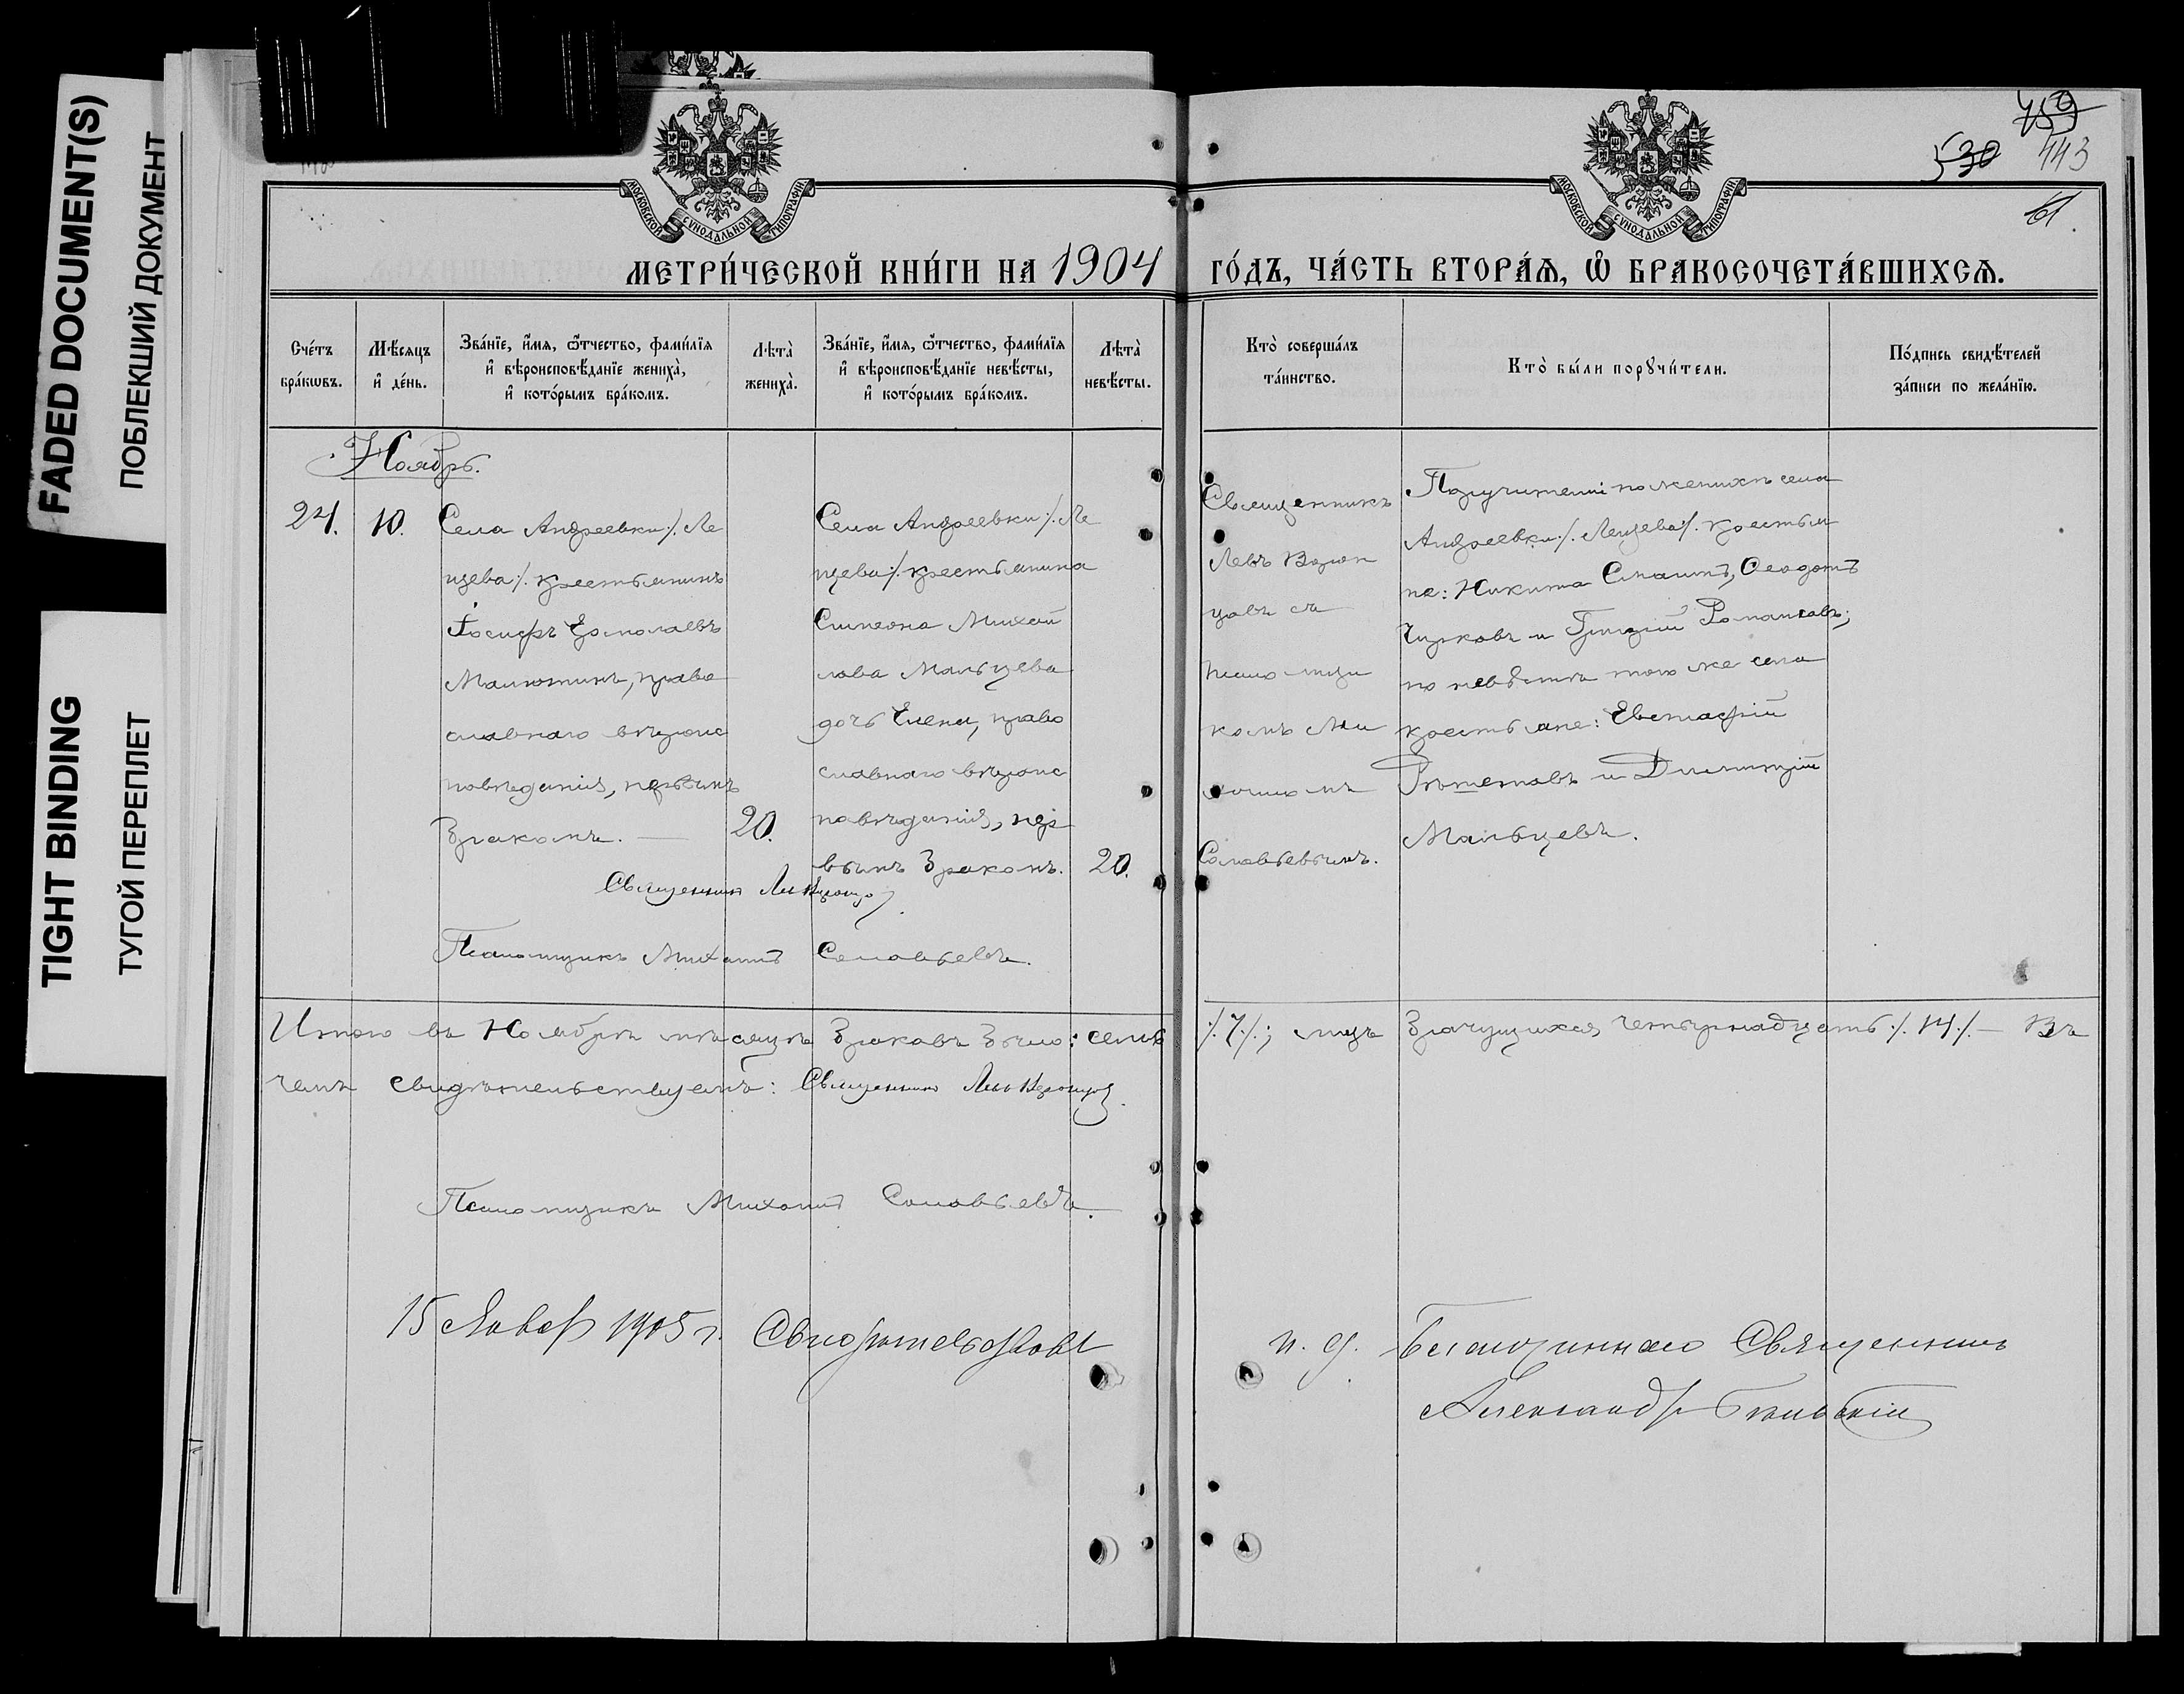 FADED DOCUMENT(S)
ПОБЛЕКШИЙ ДОКУМЕНТ
TIGHT BINDING
ТУГОЙ ПЕРЕПЛЕТ
МОСКОВСКОЙ СѴНОДАЛЬНОЙ ТИПОГРАФІИ
МОСКОВСКОЙ СѴНОДАЛЬНОЙ ТИПОГРАФІИ
459
530 443
61.
МЕТРИ́ЧЕСКОЙ КНИ́ГИ НА 1904 ГО́ДЪ, ЧА́СТЬ ВТОРА́Я, Ѡ҆ БРАКОСОЧЕТА́ВШИХСЯ.
Сче́тъ
бра́кѡвъ.
Мѣ́сяцъ
и҆ де́нь.
Зва́нїе, и҆́мя, ѻ҆́тчество, фами́лїя
и҆ вѣроисповѣ́данїе жениха̀,
и҆ кото́рымъ бра́комъ.
Лѣта̀
жениха̀.
Зва́нїе, и҆́мя, ѻ҆́тчество, фами́лїя
и҆ вѣроисповѣ́данїе невѣ́сты,
и҆ кото́рымъ бра́комъ.
Лѣта̀
невѣ́сты.
Кто̀ соверша́лъ
та́инство.
Кто̀ бы́ли порꙋчи́тели.
По́дпись свидѣ́телей
за́писи по жела́нїю.
Ноябрь.
24. 10.
Села Андреевки ./. Ле
щева ./. крестьянинъ
Іосифъ Ермолаевъ
Малютинъ, право
славнаго вѣроис
повѣданія, первымъ
бракомъ. — 20.
Села Андреевки ./. Ле
щева ./. крестьянина
Симеона Михай
лова Мальцева
дочь Елена, право
славнаго вѣроис
повѣданія, пер
вымъ бракомъ. 20.
Священникъ
Левъ
цовъ съ
псаломщи
комъ Ми
хаиломъ
Соловьевымъ.
Поручители по женихѣ села
Андреевки ./. Лещева ./. крестья
не: Никита Смагинъ, Ѳеодотъ
Чирковъ и Григорій Романовъ;
по невѣстѣ того же села
крестьяне: Евстафій
Рѣшетовъ и Димитрій
Мальцевъ.
Священникъ Левъ
Псаломщикъ Михаилъ Соловьевъ.
Итого въ Ноябрѣ мѣсяцѣ браковъ было: семь ./. 7 ./.; лицъ брачущихся, четырнадцать ./. 14 ./. — Въ
чемъ свидѣтельствуемъ: Священникъ Левъ
Псаломщикъ Михаилъ Соловьевъ.
15 Января 1905 г. Свидѣтельствовалъ и. д. Благочиннаго Священникъ
Александръ